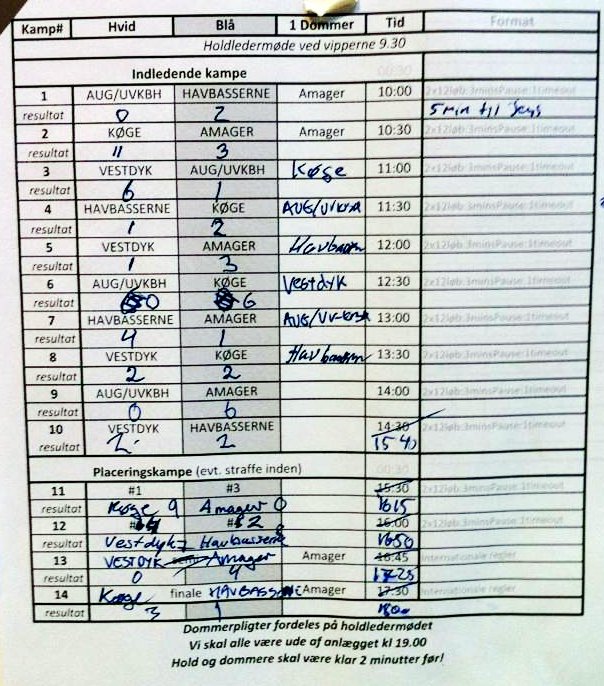 Kamp# Hvid Blå 1 Dommer Tid Format
Holdledermøde ved vipperne 9.30
Indledende kampe 00:30
1 AUG/UVKBH HAVBASSERNE Amager 10:00 2x12løb:3minsPause:1timeout
resultat 0 2 5 min til
2 KØGE AMAGER Amager 10:30 2x12løb:3minsPause:1timeout
resultat 11 3
3 VESTDYK AUG/UVKBH Køge 11:00 2x12løb:3minsPause:1timeout
resultat 6 1
4 HAVBASSERNE KØGE AUG/UVKBH 11:30 2x12løb:3minsPause:1timeout
resultat 1 2
5 VESTDYK AMAGER 12:00 2x12løb:3minsPause:1timeout
resultat 1 3
6 AUG/UVKBH KØGE Vestdyk 12:30 2x12løb:3minsPause:1timeout
resultat 0 6
7 HAVBASSERNE AMAGER AUG/UVKBH 13:00 2x12løb:3minsPause:1timeout
resultat 4 1
8 VESTDYK KØGE 13:30 2x12løb:3minsPause:1timeout
resultat 2 2
9 AUG/UVKBH AMAGER 14:00 2x12løb:3minsPause:1timeout
resultat 0 6
10 VESTDYK HAVBASSERNE 14:30 2x12løb:3minsPause:1timeout
resultat 2 2 15 40
Placeringskampe (evt. straffe inden) 00:30
11 #1 #3 15:30 2x12løb:3minsPause:1timeout
resultat Køge 9 Amager 0 1615
12 #2 16:00 2x12løb:3minsPause:1timeout
resultat Vestdyk 7 Havbasserne 8 1650
13 VESTDYK Amager Amager 16:45 Internationale regler
resultat 0 4 1725
14 Køge finale HAVBASSERNE Amager 17:30 Internationale regler
resultat 3 1 1800
Dommerpligter fordeles på holdledermødet
Vi skal alle være ude af anlægget kl 19.00
Hold og dommere skal være klar 2 minutter før!